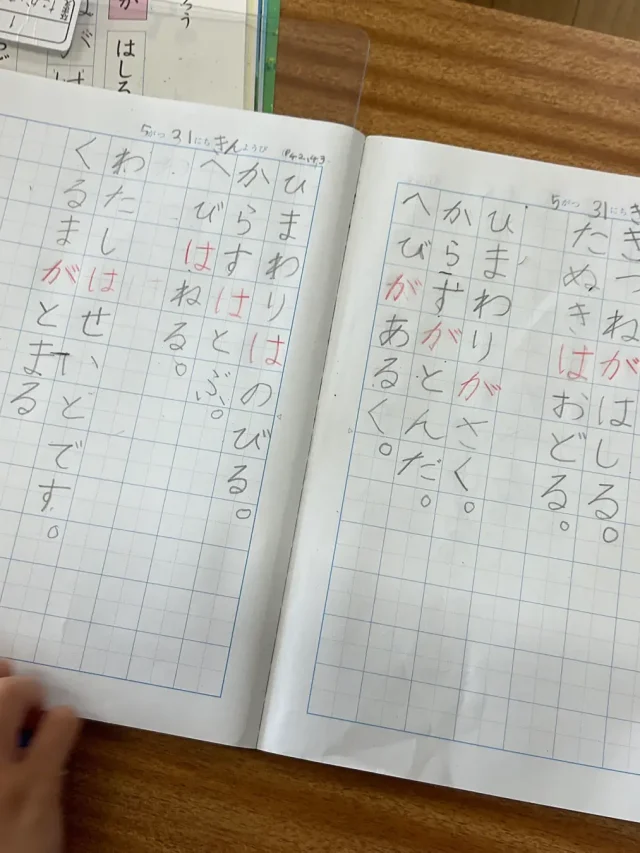 5がつ 31にち き
きつねがはしる。
たぬきはおどる。
ひまわりがさく。
からすがとんだ。
へびがあるく。
5がつ 31にち きんようび (P42,43)
ひまわりはのびる。
からすはとぶ。
へびはねる。
わたしはせいとです。
くるまがとまる
ろう
はしる
が